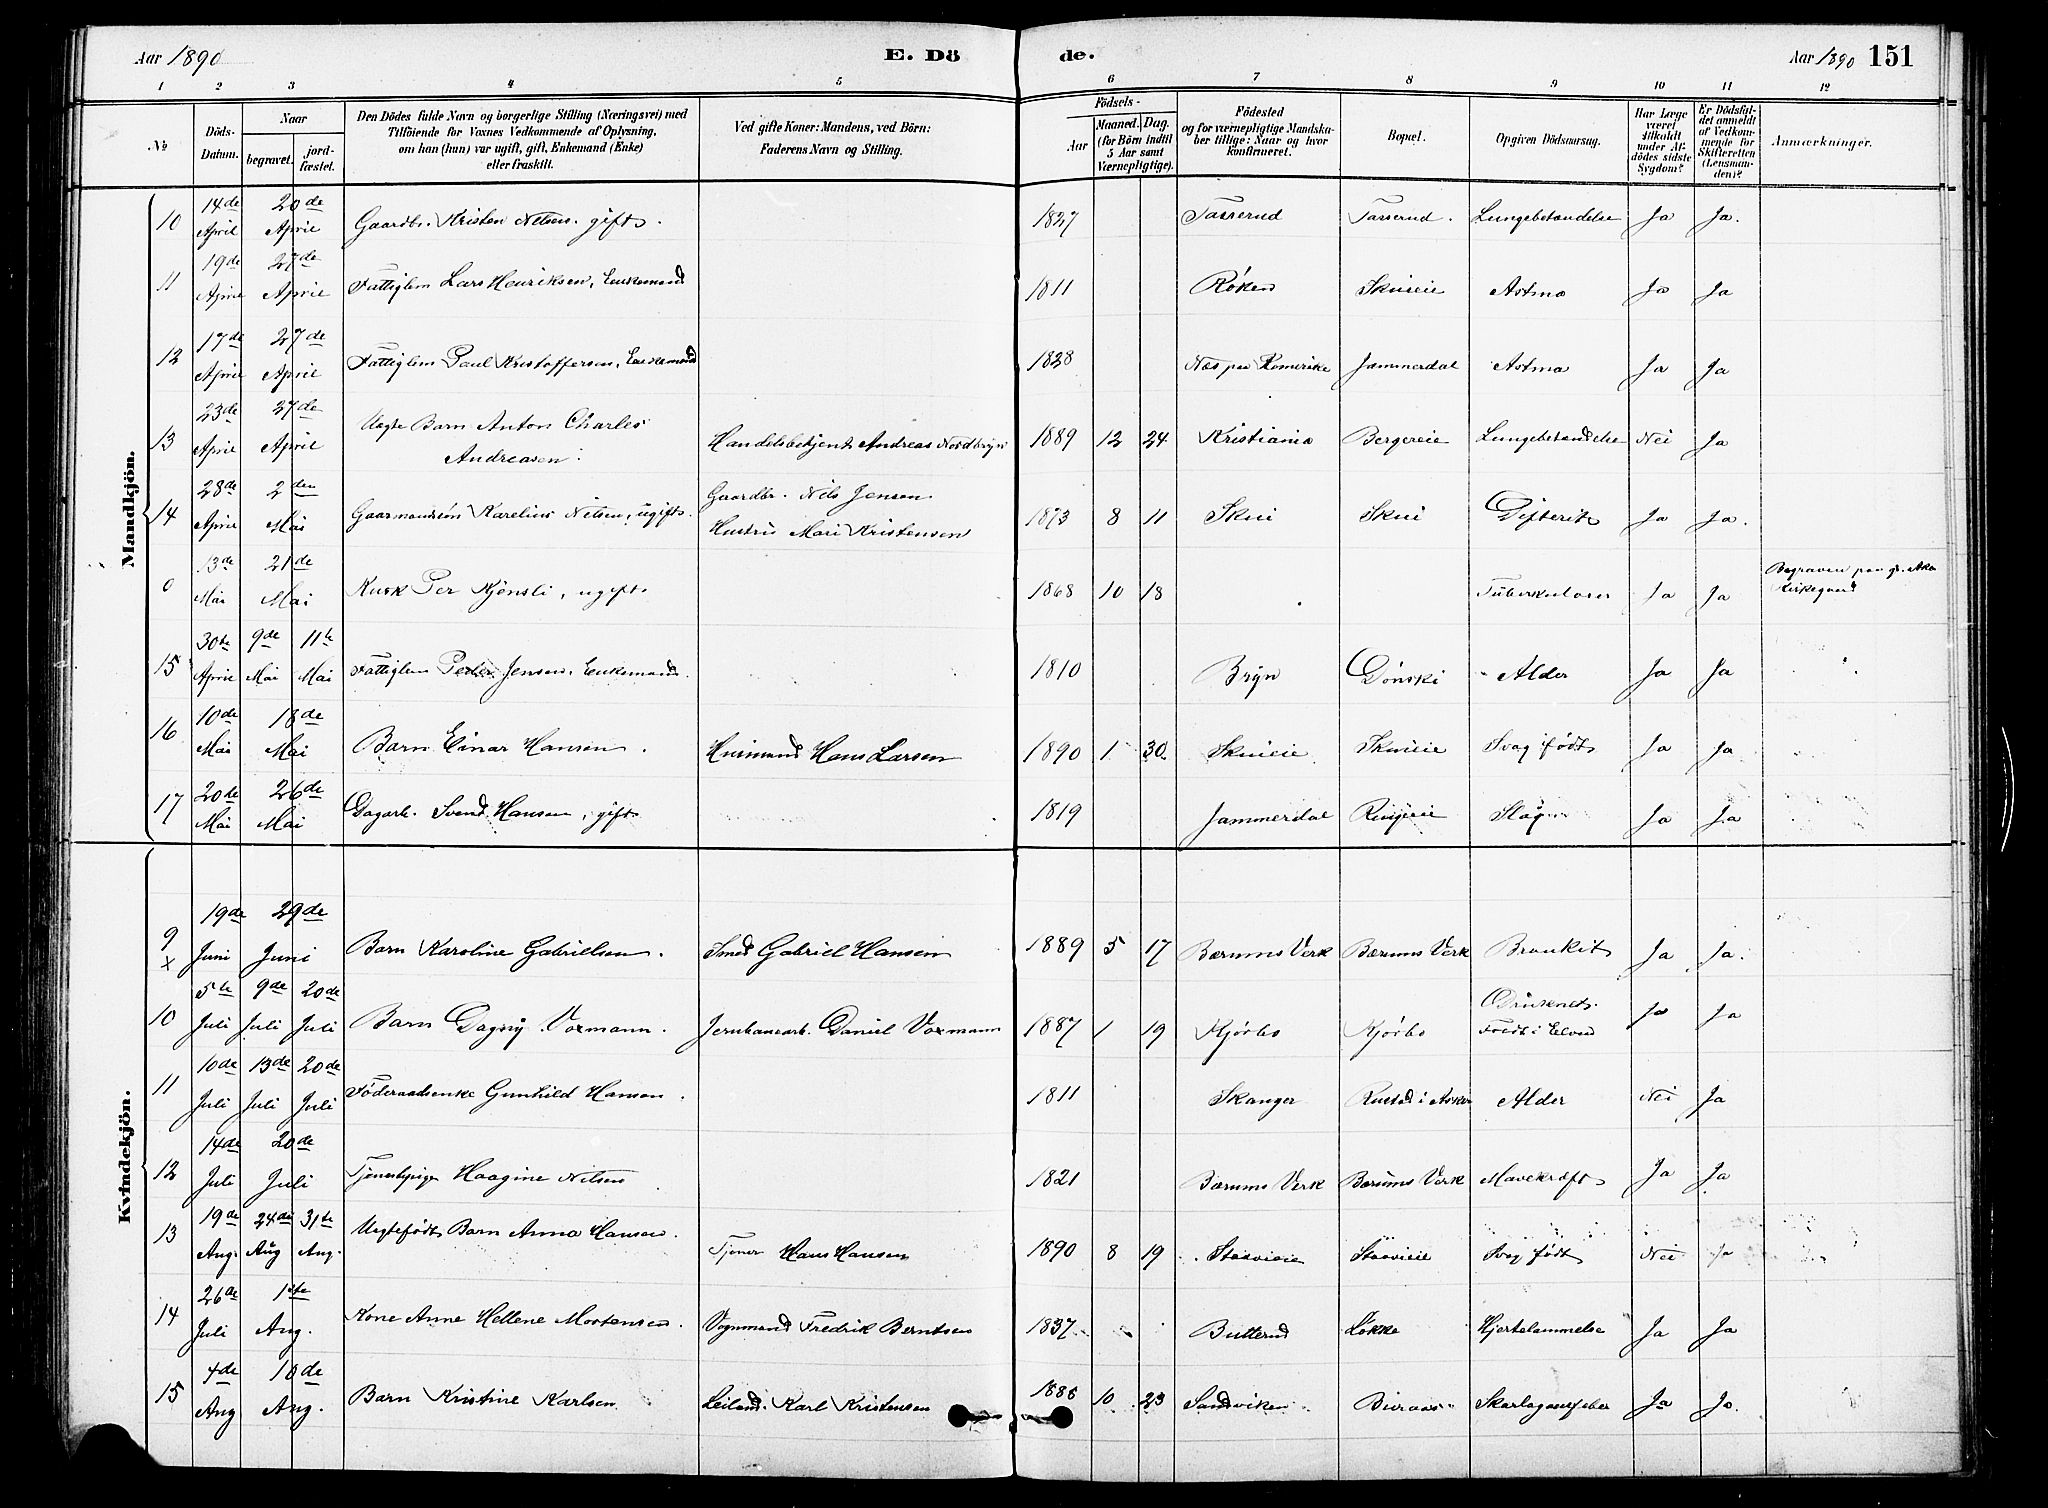 Aar 1890 E. Dö de. Aar 1890 151
1 2 3 4 5 6 7 8 9 10 11 12
No
Döds-Datum.
Naar
begravet.
jordfæstet.
Den Dödes fulde Navn og borgerlige Stilling (Næringsvei) med
Tilföiende for Voxnes Vedkommende af Oplysning,
om han (hun) var ugift, gift, Enkemand (Enke)
eller fraskilt.
Ved gifte Koner: Mandens, ved Börn:
Faderens Navn og Stilling.
Födsels-
Aar
Maaned. Dag.
(for Börn indtil
5 Aar samt
Værnepligtige).
Födested
og for værnepligtige Mandska-
ber tillige: Naar og hvor
konfirmeret.
Bopæl.
Opgiven Dödsaarsag.
Har Læge
været
tilkaldt
under Af-
dödes sidste
Sygdom?
Er Dödsfal-
det anmeldt
af Vedkom-
mende for
Skifteretten
(Lensman-
den)?
Anmærkninger.
Mandkjön.
10 14de April 20de April Gaardbr. Kristen Nilsen. gift. 1827 Tasserud Tasserud. Lungebetændelse Ja Ja.
11 19de April 27de April Fattiglem Lars Henriksen, Enkemand 1811 Røken Skuieie Astma Ja Ja
12 17de April 27de April Fattiglem Paul Kristoffersen, Enkemand 1828 Næs paa Romerike Jammerdal Astma Ja Ja
13 23de April 27de April Uægte Barn Anton Charles
Andreasen. Handelsbetjent Andreas Nordbryn 1889 12 24 Kristiania Bergereie Lungebetændelse Nei Ja
14 28de April 2den Mai Gaarmandssøn Karelius Nilsen, ugift. Gaardbr. Nils Jensen
Hustru Mari Kristensen 1873 8 11 Skui Skui Difterit Ja Ja.
0 13de Mai 21de Mai Kusk Per Kjønsli, ugift. 1868 10 18 Tuberkuloser Ja Ja Begraven paa v. Aker
Kirkegaard
15 30te April 9de Mai 11te Mai Fattiglem Peder Jensen, Enkemand. 1810 Bryn Dønski Alder Ja Ja
16 10de Mai 18de Mai Barn Einar Hansen. Husmand Hans Larsen 1890 1 30 Skuieie Skuieie Svag født Ja Ja
17 20de Mai 26de Mai Dagarb. Svend Hansen, gift 1819 Jammerdal Ringieie Slag Ja Ja
Kvindekjön.
9 x 19de Juni 29de Juni Barn Karoline Gabrielsen. Smed Gabriel Hansen 1889 5 17 Bærums Verk Bærums Verk Bronkit Ja Ja.
10 5te Juli 9de Juli 20de Juli Barn Dagny Voxmann. Jernbanearb. Daniel Voxmann 1887 1 19 Kjørbo Kjørbo Druknet.
Faldt i Elven Ja Ja
11 10de Juli 13de Juli 20de Juli Föderaadsenke Gunhild Hansen. 1811 Skanger Rustad i Asker Alder Nei Ja
12 14de Juli 20de Juli Tjenestepige Haagine Nilsen 1821 Bærums Verk Bærums Verk Mavekræft Ja Ja
13 19de Aug. 24de Aug 31te Aug. Uægtefødt Barn Anna Hansen. Tjener Hans Hansen 1890 8 19 Stavieie Stavieie Svag født Nei Ja
14 26de Juli 1ste Aug. Kone Anne Hellene Mortensen. Vognmand Fredrik Berntsen 1837 Butterud Løkke Hjertelammelse Ja Ja
15 4de Aug 10de Aug. Barn Kristine Karlsen Leiland. Karl Kristensen 1888 10 23 Sandviken Skarlagensfeber Ja Ja.